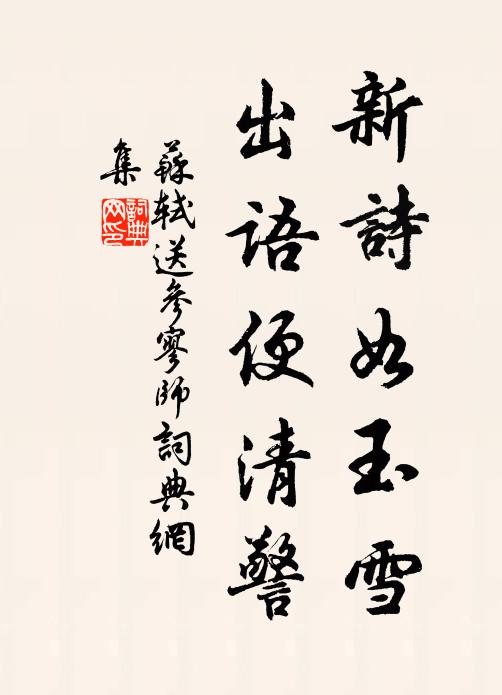 新詩如玉雪
出語便清警
蘇軾送參寥師詞典網
集
詞典網印